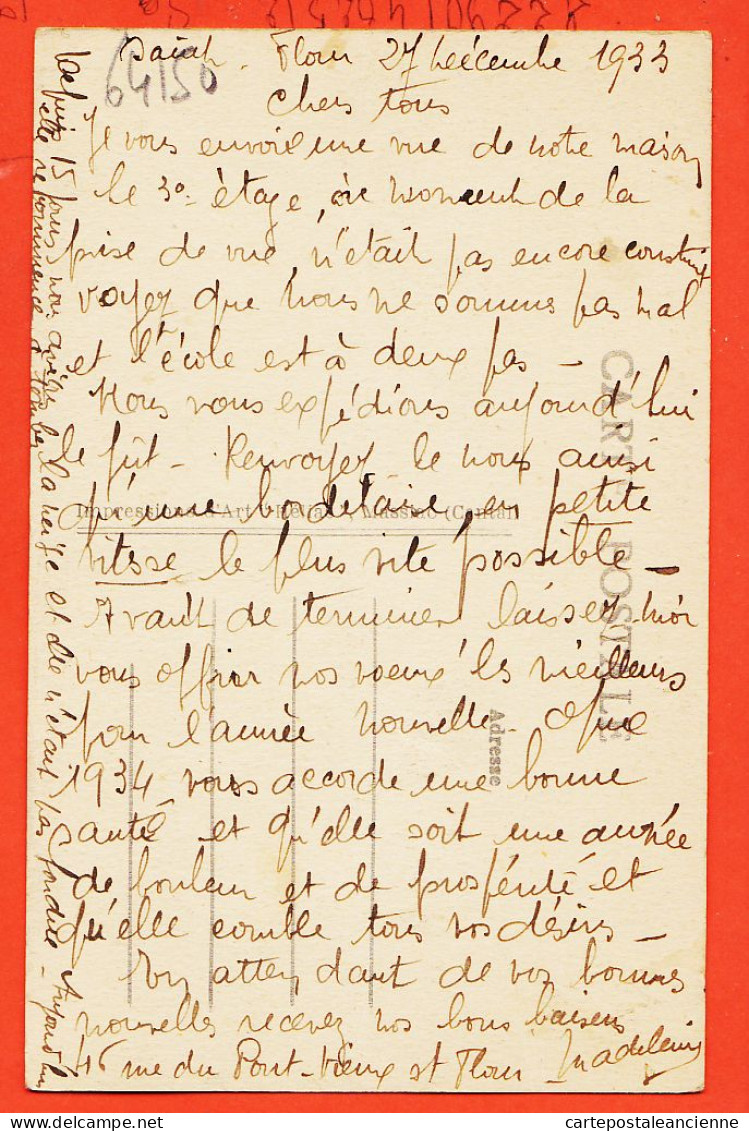 64150
Saint-Flour 27 Décembre 1933
Chers tous
Je vous envoie une vue de notre maison
le 3º étage, au moment de la
prise de vue, n'était pas encore construit
voyez que nous ne sommes pas mal
et l'école est à deux pas -
Nous vous expédions aujourd'hui
le fût - Renvoyez-le nous aussi
en petite
vitesse le plus vite possible -
Avant de terminer laissez-moi
vous offrir nos voeux les meilleurs
pour l'année nouvelle. Que
1934 vous accorde une bonne
santé et qu'elle soit une année
de bonheur et de prospérité et
qu'elle comble tous vos désirs -
En attendant de vos bonnes
nouvelles recevez nos bons baisers
46 rue du Pont-Vieux St Flour Madeleine
Depuis 15 jours nous avions la neige et elle n'était pas fondue - Aujourd'hui
elle recommence à tomber
CARTE POSTALE
Adresse
Impressions d'Art Massiac (Cantal)
cartepostaleancienne.com